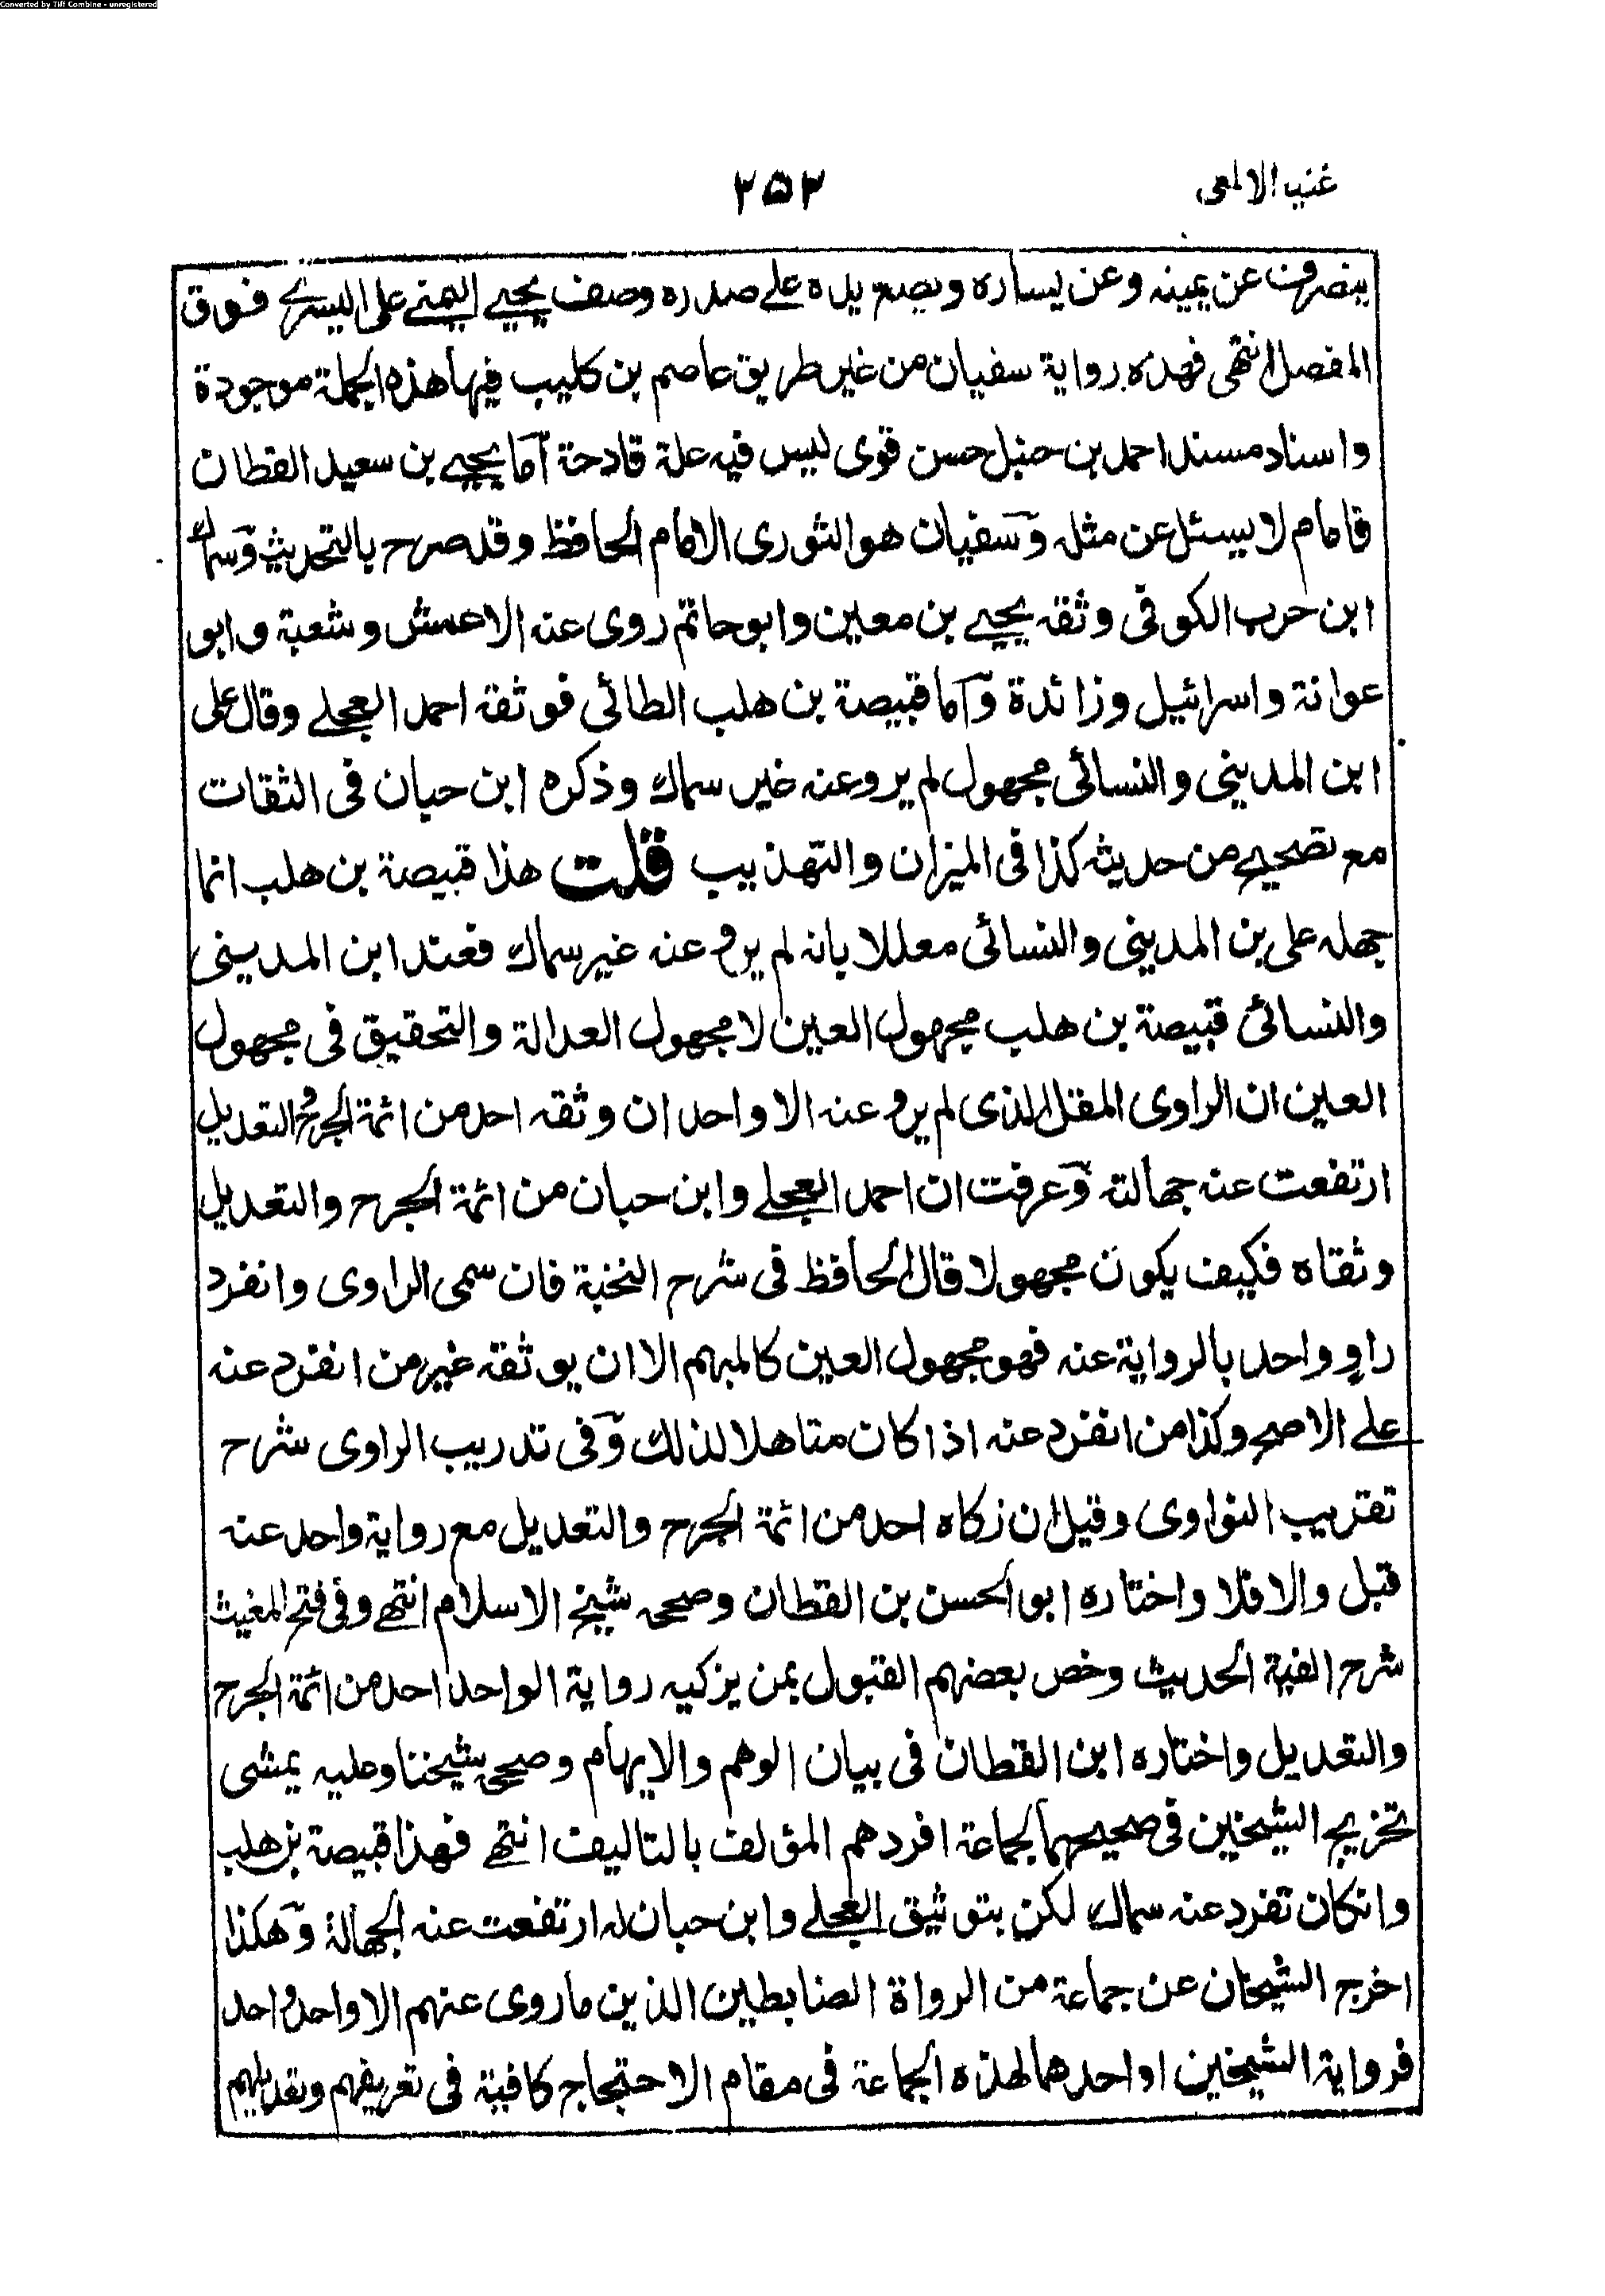 Converted by Tiff Combine - unregistered
غنية الالمعى
٢٥٢
ينصرف عن يمينه وعن يساره ويضع يده علے صدره وصف يحيے اليمنے على اليسرے فوق
المفصل انتهى فهذه رواية سفيان من غير طريق عاصم بن كليب فيها هذه الجملة موجودة
واسناد مسند احمد بن حنبل حسن قوى ليس فيه علة قادحة اما يحيے بن سعيد القطان
فامام لا يسئل عن مثله وسفيان هو الثورى الامام الحافظ وقد صرح بالتحديث وسماك
ابن حرب الكوفى وثقه يحيے بن معين وابو حاتم روى عنه الاعمش وشعبة وابو
عوانة واسرائيل وزائدة واما قبيصة بن هلب الطائى فوثقه احمد العجلے وقال على
ابن المدينى والنسائى مجهول لم يرو عنه غير سماك وذكره ابن حبان فى الثقات
مع تصحيح من حديثه كذا فى الميزان والتهذيب قلت هذا قبيصة بن هلب انما
جهله على بن المدينى والنسائى معللا بانه لم يرو عنه غير سماك فعند ابن المدينى
والنسائى قبيصة بن هلب مجهول العين لا مجهول العدالة والتحقيق فى مجهول
العين ان الراوى المقل الذى لم يرو عنه الا واحد ان وثقه احد من ائمة الجرح والتعديل
ارتفعت عنه جهالته وعرفت ان احمد العجلے وابن حبان من ائمة الجرح والتعديل
وثقاه فكيف يكون مجهولا قال الحافظ فى شرح النخبة فان سمى الراوى وانفرد
راو واحد بالرواية عنه فهو مجهول العين كالمبهم الا ان يوثقه غير من انفرد عنه
علے الاصح وكذا من انفرد عنه اذا كان متاهلا لذلك وفى تدريب الراوى شرح
تقريب النواوى وقيل ان زكاه احد من ائمة الجرح والتعديل مع رواية واحد عنه
قبل والا فلا واختاره ابو الحسن بن القطان وصححه شيخ الاسلام انتهے وفى فتح المغيث
شرح الفية الحديث وخص بعضهم القبول بمن يزكيه رواية الواحد احد من ائمة الجرح
والتعديل واختاره ابن القطان فى بيان الوهم والايهام وصححه شيخنا وعليه يمشى
تخريج الشيخين فى صحيحيهما لجماعة افردهم المؤلف بالتاليف انتهے فهذا قبيصة بن هلب
وانكان تفرد عنه سماك لكن بتوثيق العجلے وابن حبان له ارتفعت عنه الجهالة وهكذا
اخرج الشيخان عن جماعة من الرواة الضابطين الذين ما روى عنهم الا واحد واحد
فرواية الشيخين او احدهما لهذه الجماعة فى مقام الاحتجاج كافية فى تعريفهم وتعديلهم